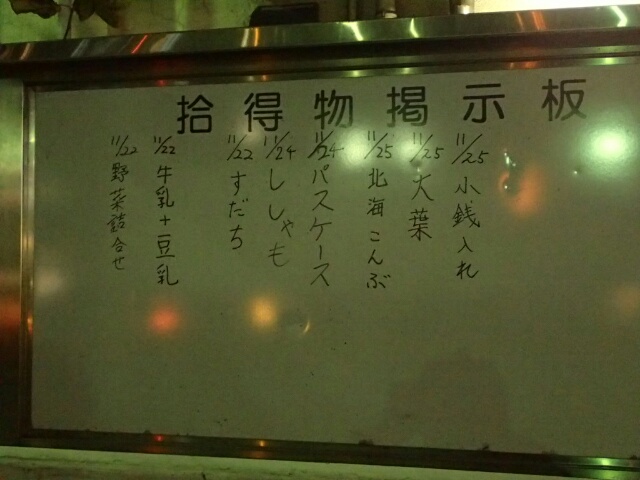 拾得物掲示板
11/25 小銭入れ
11/25 大葉
11/25 北海こんぶ
11/24 パスケース
11/24 ししゃも
11/22 すだち
11/22 牛乳+豆乳
11/22 野菜詰合せ